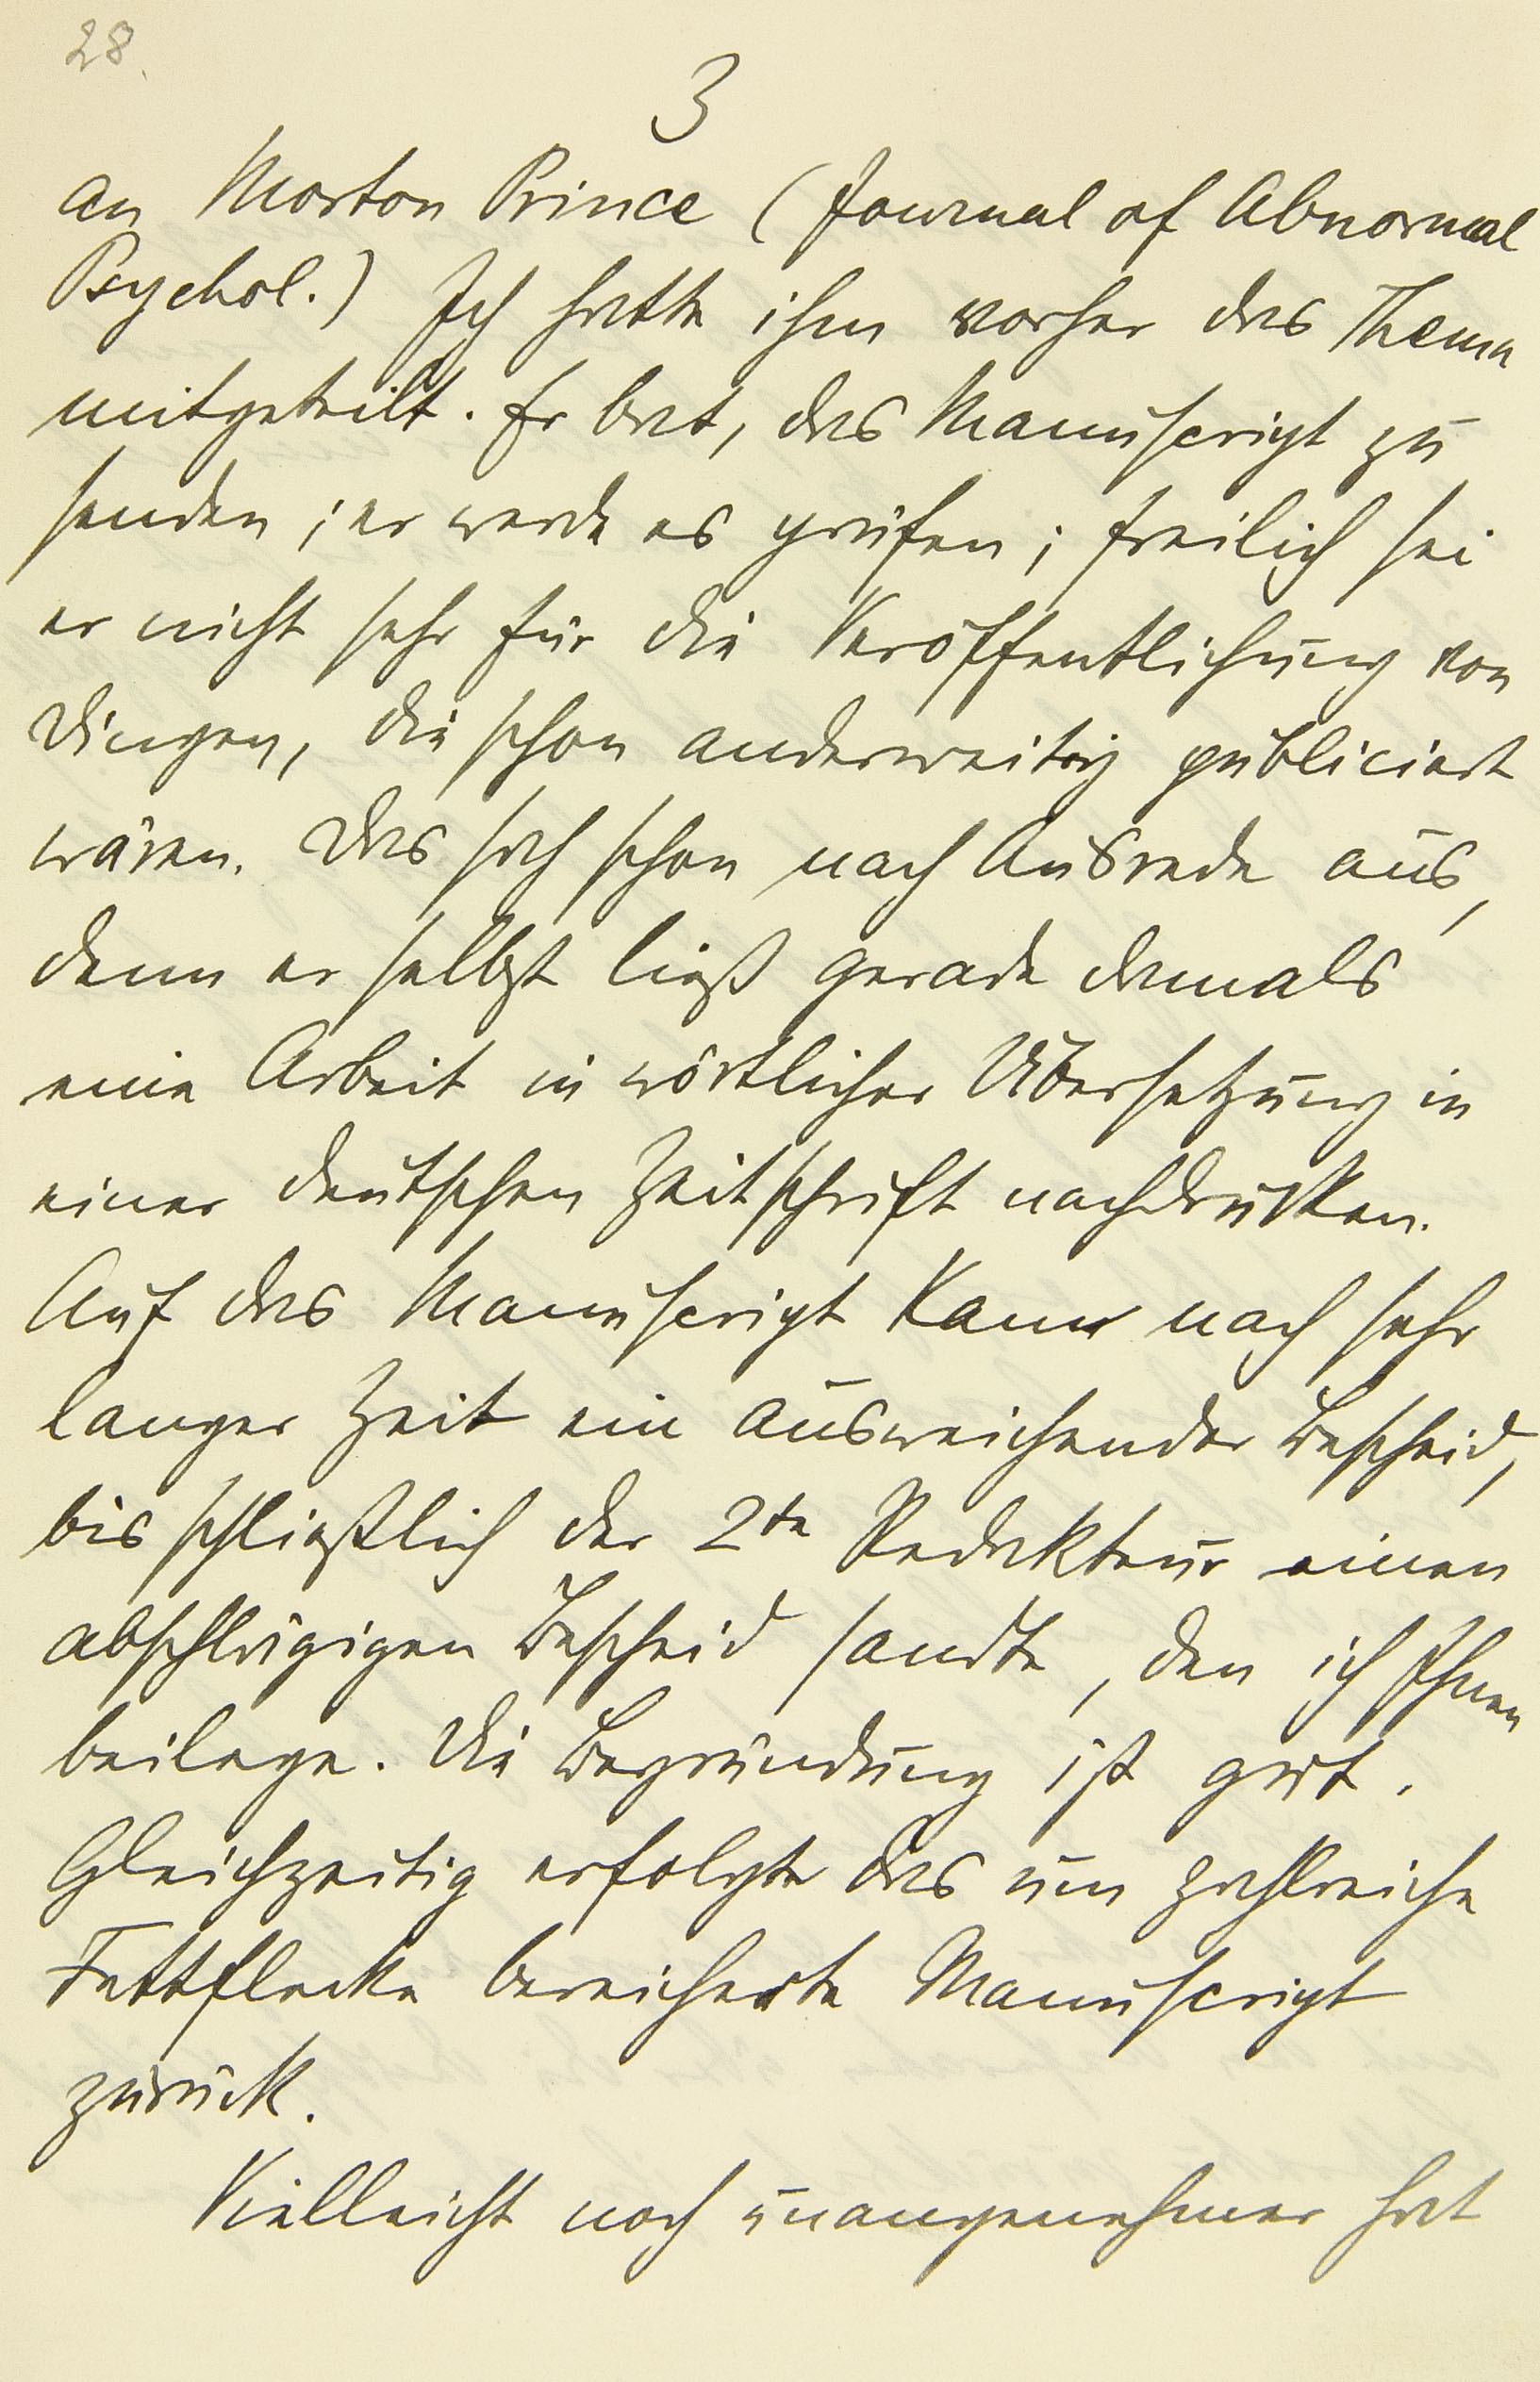 28.
3
an Morton Prince (Journal of Abnormal
Psychol.) Ich hatte ihm vorher das Thema
mitgeteilt. Er bat, das Manuscript zu
senden; er werde es prüfen; freilich sei
er nicht sehr für die Veröffentlichung von
Dingen, die schon anderweitig publiciert
wären. Das sah schon nach Ausrede aus,
denn er selbst ließ gerade damals
eine Arbeit in wörtlicher Übersetzung in
einer deutschen Zeitschrift nachdrucken.
Auf das Manuscript kam nach sehr
langer Zeit ein ausweichender Bescheid,
bis schließlich der 2te Redakteur einen
abschlägigen Bescheid sandte, den ich Ihnen
beilege. Die Begründung ist gut.
Gleichzeitig erfolgte das um zahlreiche
Fettflecke bereicherte Manuscript
zurück.
Vielleicht noch unangenehmer hat